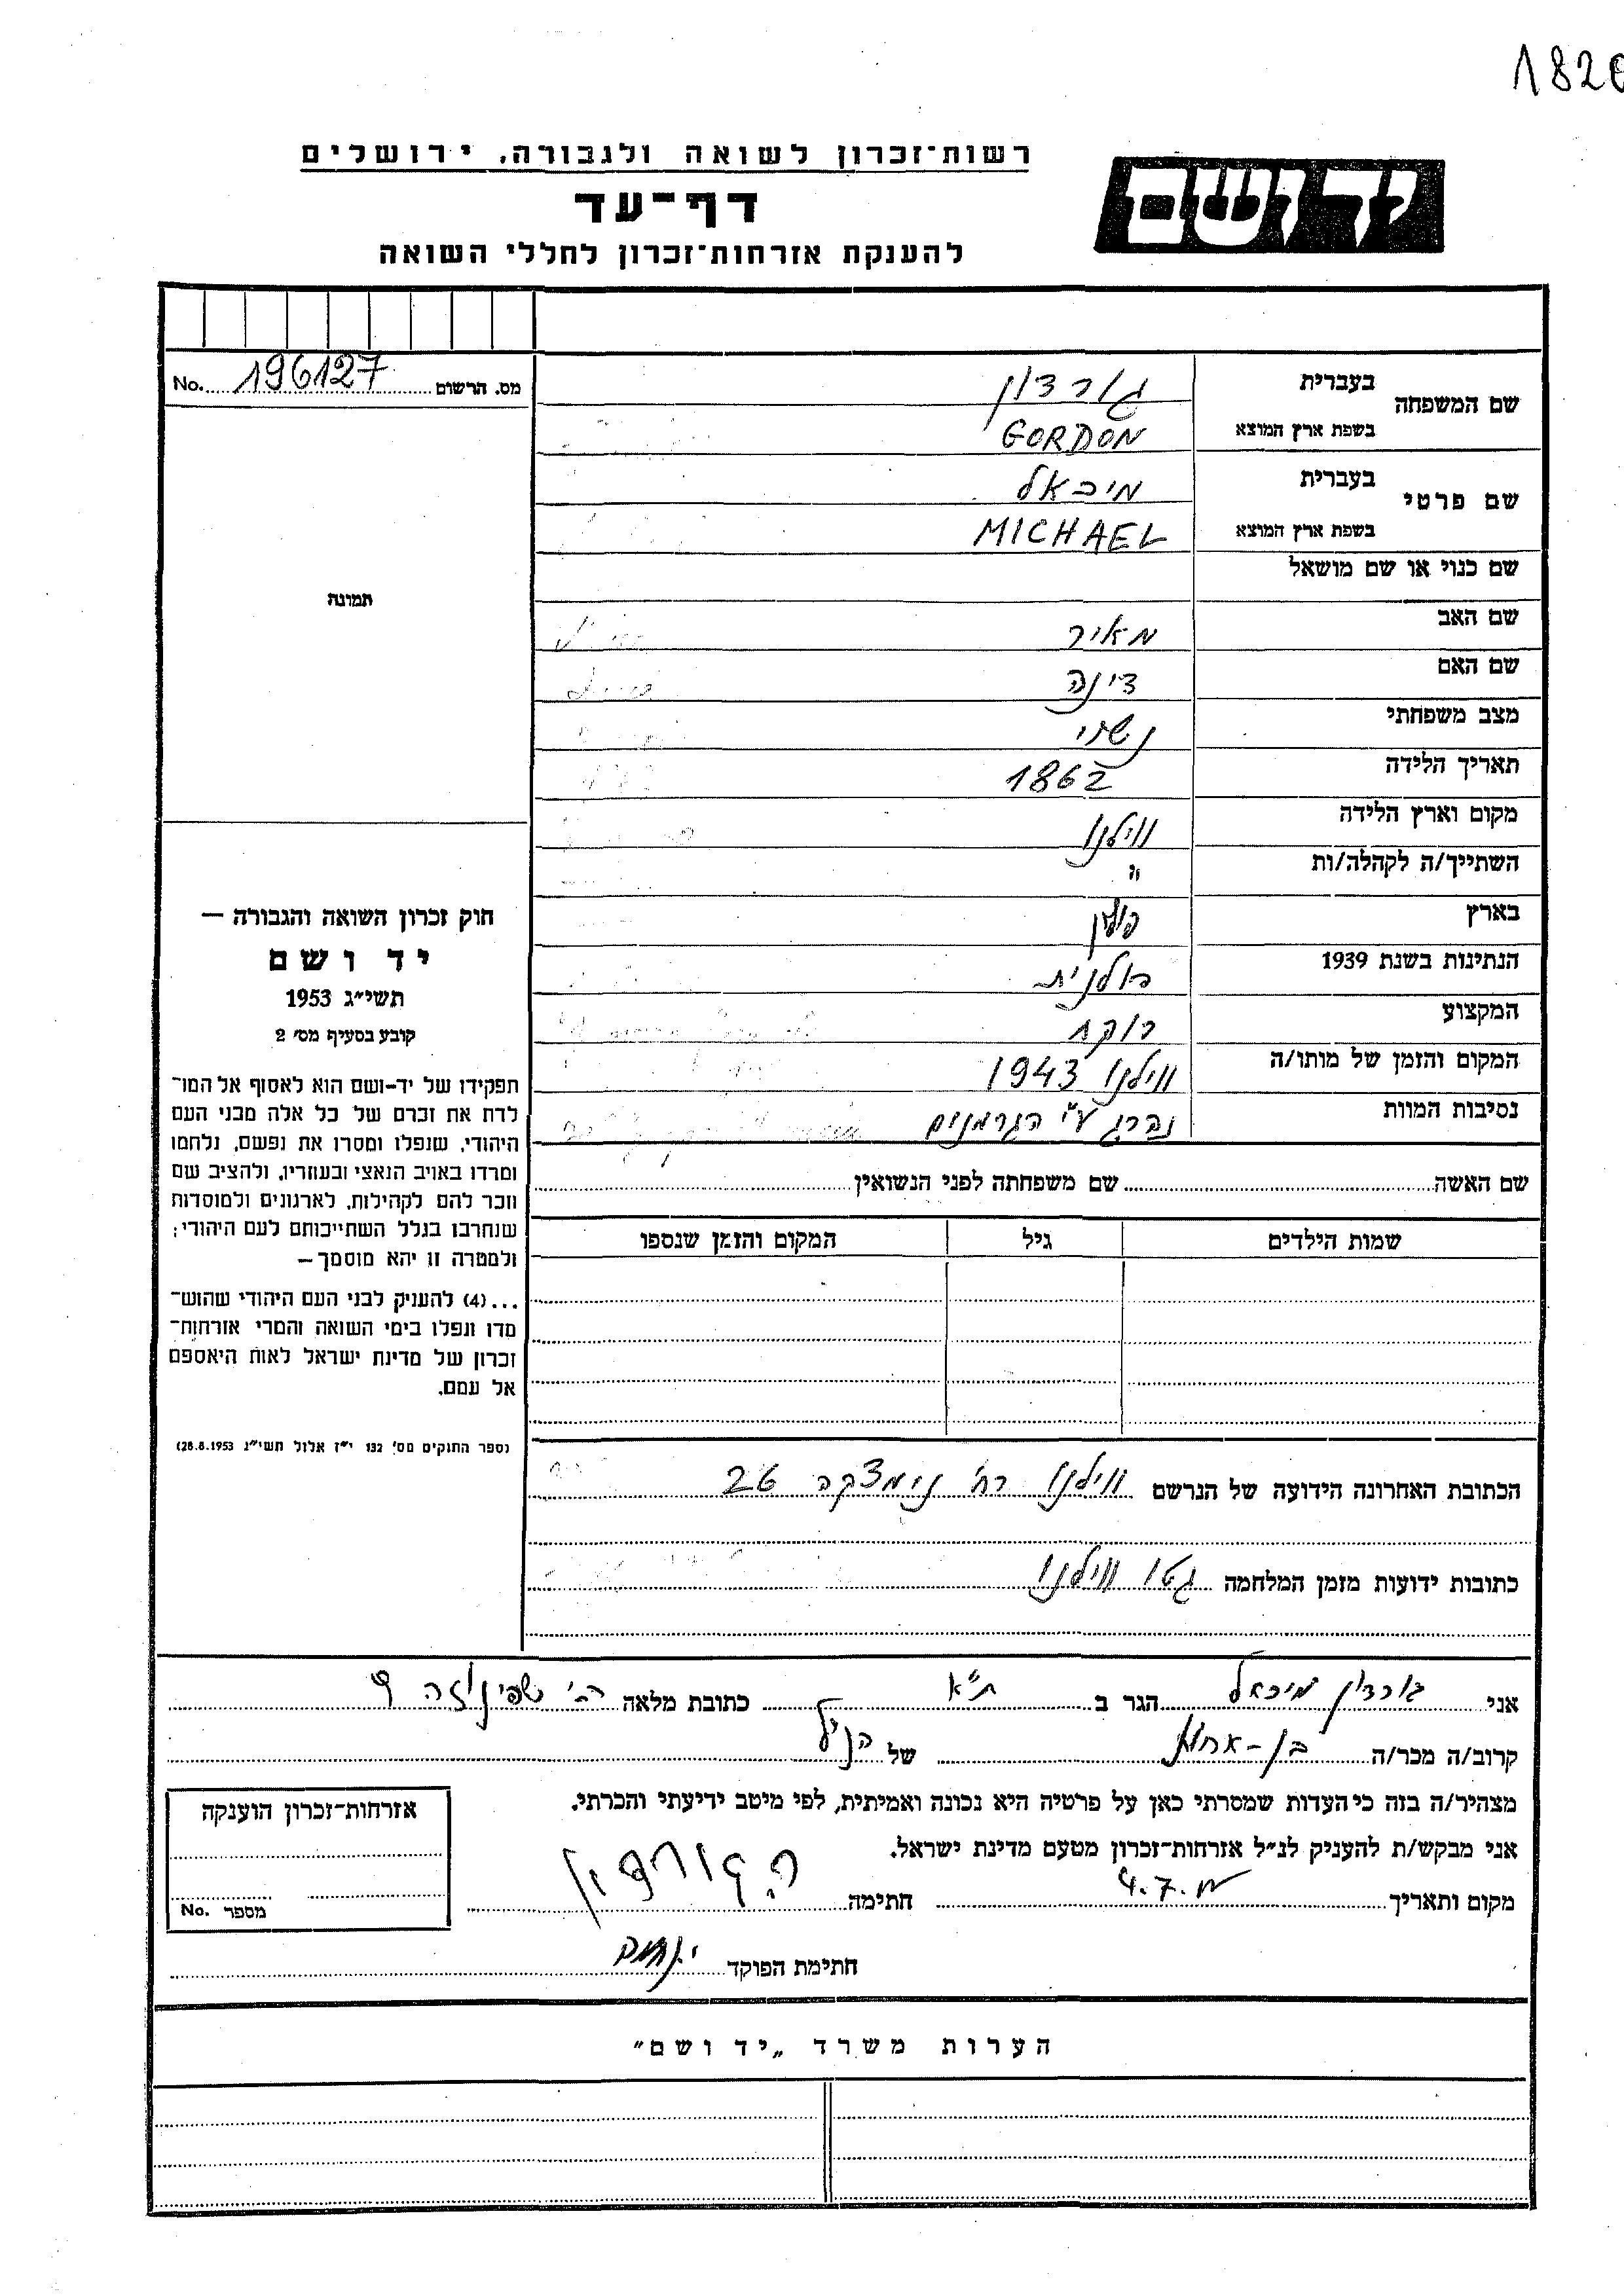 182
רשות־זכרון לשואה ולגבורה, ירושלים
יד ושם
דף־עד
להענקת אזרחות־זכרון לחללי השואה
מס. הרשום 196127 No.
שם המשפחה בעברית גורדון
בשפת ארץ המוצא GORDON
שם פרטי בעברית מיכאל
בשפת ארץ המוצא MICHAEL
שם כנוי או שם מושאל
תמונה
שם האב מאיר
שם האם דינה
מצב משפחתי נשוי
תאריך הלידה 1862
מקום וארץ הלידה ווילנו
השתייך/ה לקהלה/ות "
בארץ פולין
הנתינות בשנת 1939 פולנית
המקצוע רוקח
המקום והזמן של מותו/ה ווילנו 1943
נסיבות המוות נהרג ע"י הגרמנים
חוק זכרון השואה והגבורה —
יד ושם
תשי״ג 1953
קובע בסעיף מס׳ 2
תפקידו של יד-ושם הוא לאסוף אל המו־
לדת את זכרם של כל אלה מבני העם
היהודי, שנפלו ומסרו את נפשם, נלחמו
ומרדו באויב הנאצי ובעוזריו, ולהציב שם
וזכר להם לקהילות, לארגונים ולמוסדות
שנחרבו בגלל השתייכותם לעם היהודי;
ולמטרה זו יהא מוסמך —
...(4) להעניק לבני העם היהודי שהוש־
מדו ונפלו בימי השואה והמרי אזרחות־
זכרון של מדינת ישראל לאות היאספם
אל עמם.
(ספר החוקים מס׳ 132 י״ז אלול תשי״ג 28.8.1953)
שם האשה שם משפחתה לפני הנשואין
שמות הילדים גיל המקום והזמן שנספו
הכתובת האחרונה הידועה של הנרשם ווילנו רח' נימצקה 26
כתובות ידועות מזמן המלחמה גטו ווילנו
אני גורדון מיכאל הגר ב ת"א כתובת מלאה רח' שפינוזה 9
קרוב/ה מכר/ה בן-אחות של הנ"ל
מצהיר/ה בזה כי העדות שמסרתי כאן על פרטיה היא נכונה ואמיתית, לפי מיטב ידיעתי והכרתי.
אני מבקש/ת להעניק לנ״ל אזרחות־זכרון מטעם מדינת ישראל.
מקום ותאריך 4.7. חתימה גורדון
חתימת הפוקד
אזרחות־זכרון הוענקה
מספר No.
הערות משרד „יד ושם"